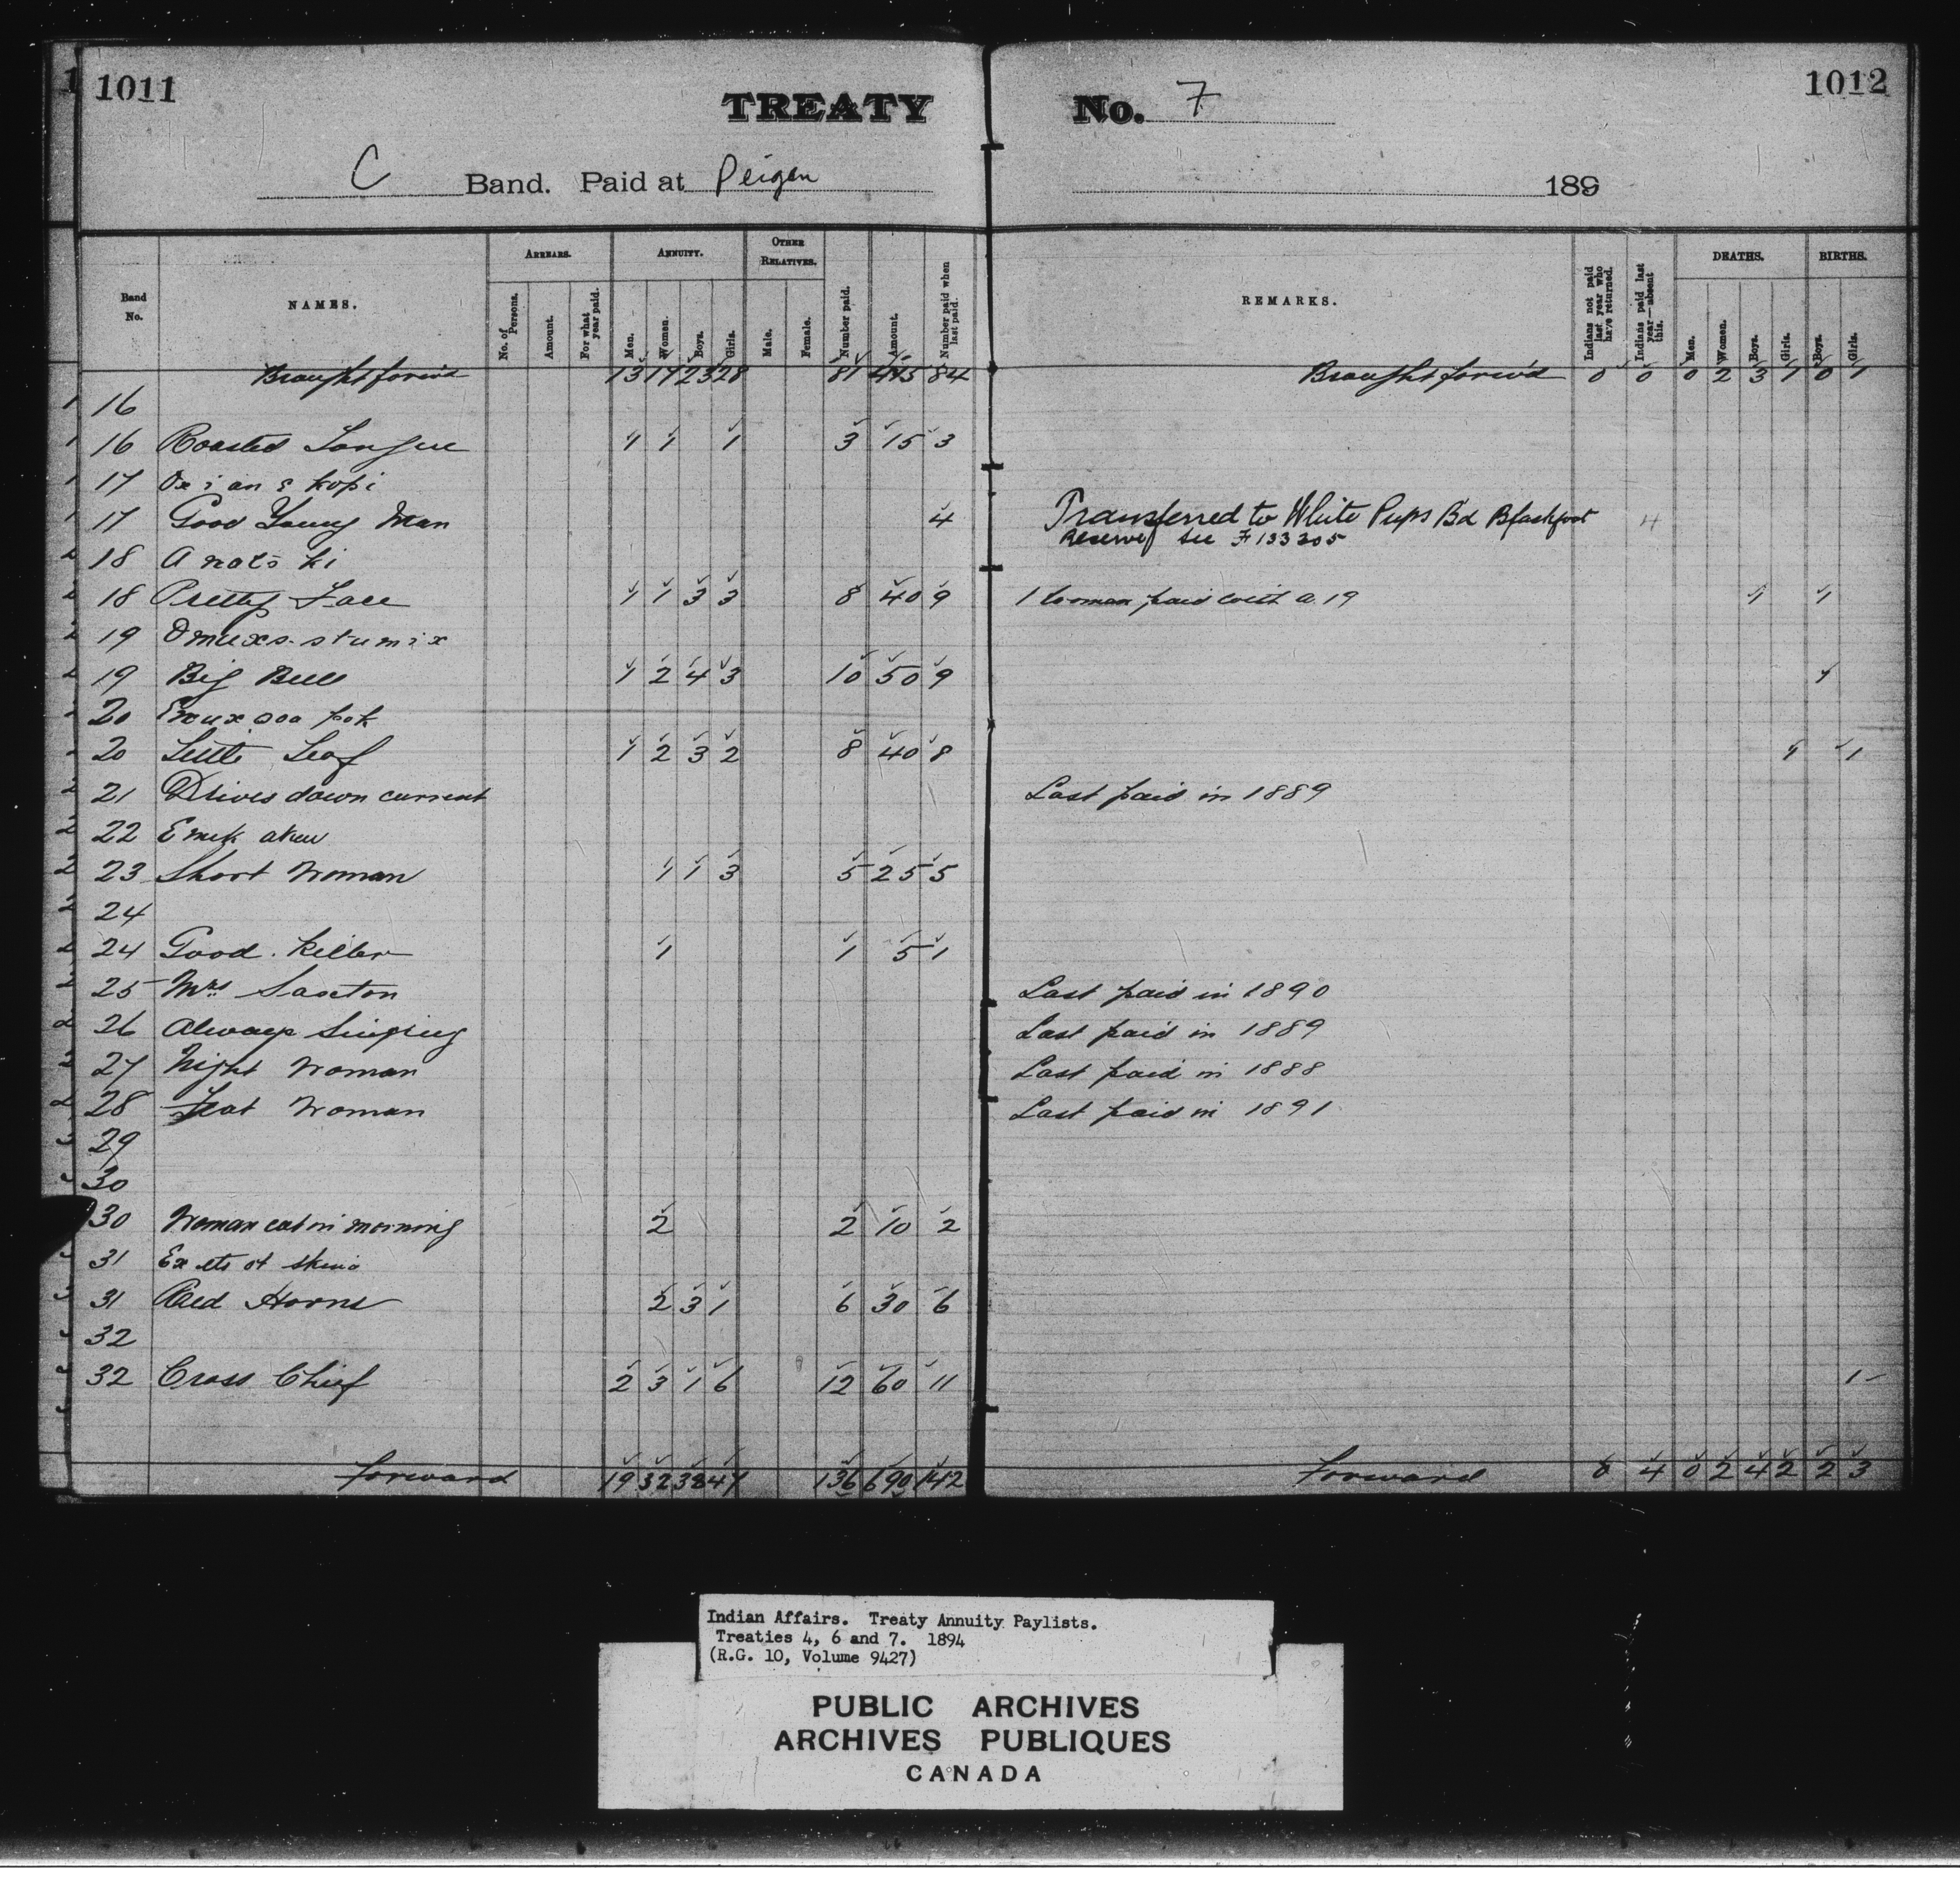 1011 TREATY No. 7 1012
C Band. Paid at Peigan 189
Band No. NAMES. ARREARS. No. of Persons. Amount. For what year paid. ANNUITY. Men. Women. Boys. Girls. OTHER RELATIVES. Male. Female. Number paid. Amount. Number paid when last paid. REMARKS. Indians not paid last year who have returned. Indians paid last year—absent this. DEATHS. Men. Women. Boys. Girls. BIRTHS. Boys. Girls.
Brought forw'd 13 17 23 28 81 84 Brought forw'd 0 0 0 2 3 1 0 1
16
16 Roasted Tongue 1 1 1 3 15 3
17
17 Good Young Man 4 Transferred to White Pups Bd Blackfoot 4
Reserve see F 133205
18
18 Pretty Face 1 1 3 3 8 40 9 1 Woman paid with a. 19 1 1
19 Omuxs-stumix
19 Big Bull 1 2 4 3 10 50 9 1
20
20 Little Leaf 1 2 3 2 8 40 8 1 1
21 Drives down current Last paid in 1889
22
23 Short Woman 1 1 3 5 25 5
24
24 Good Killer 1 1 5 1
25 Mrs Saxton Last paid in 1890
26 Always Singing Last paid in 1889
27 Night Woman Last paid in 1888
28 Woman Last paid in 1891
29
30
30 Woman eat in morning 2 2 10 2
31
31 Red Horns 2 3 1 6 30 6
32
32 Cross Chief 2 3 1 6 12 60 11 1
forward 19 32 38 47 136 690 142 forward 0 4 0 2 4 2 2 3
Indian Affairs. Treaty Annuity Paylists.
Treaties 4, 6 and 7. 1894
(R.G. 10, Volume 9427)
PUBLIC ARCHIVES
ARCHIVES PUBLIQUES
CANADA